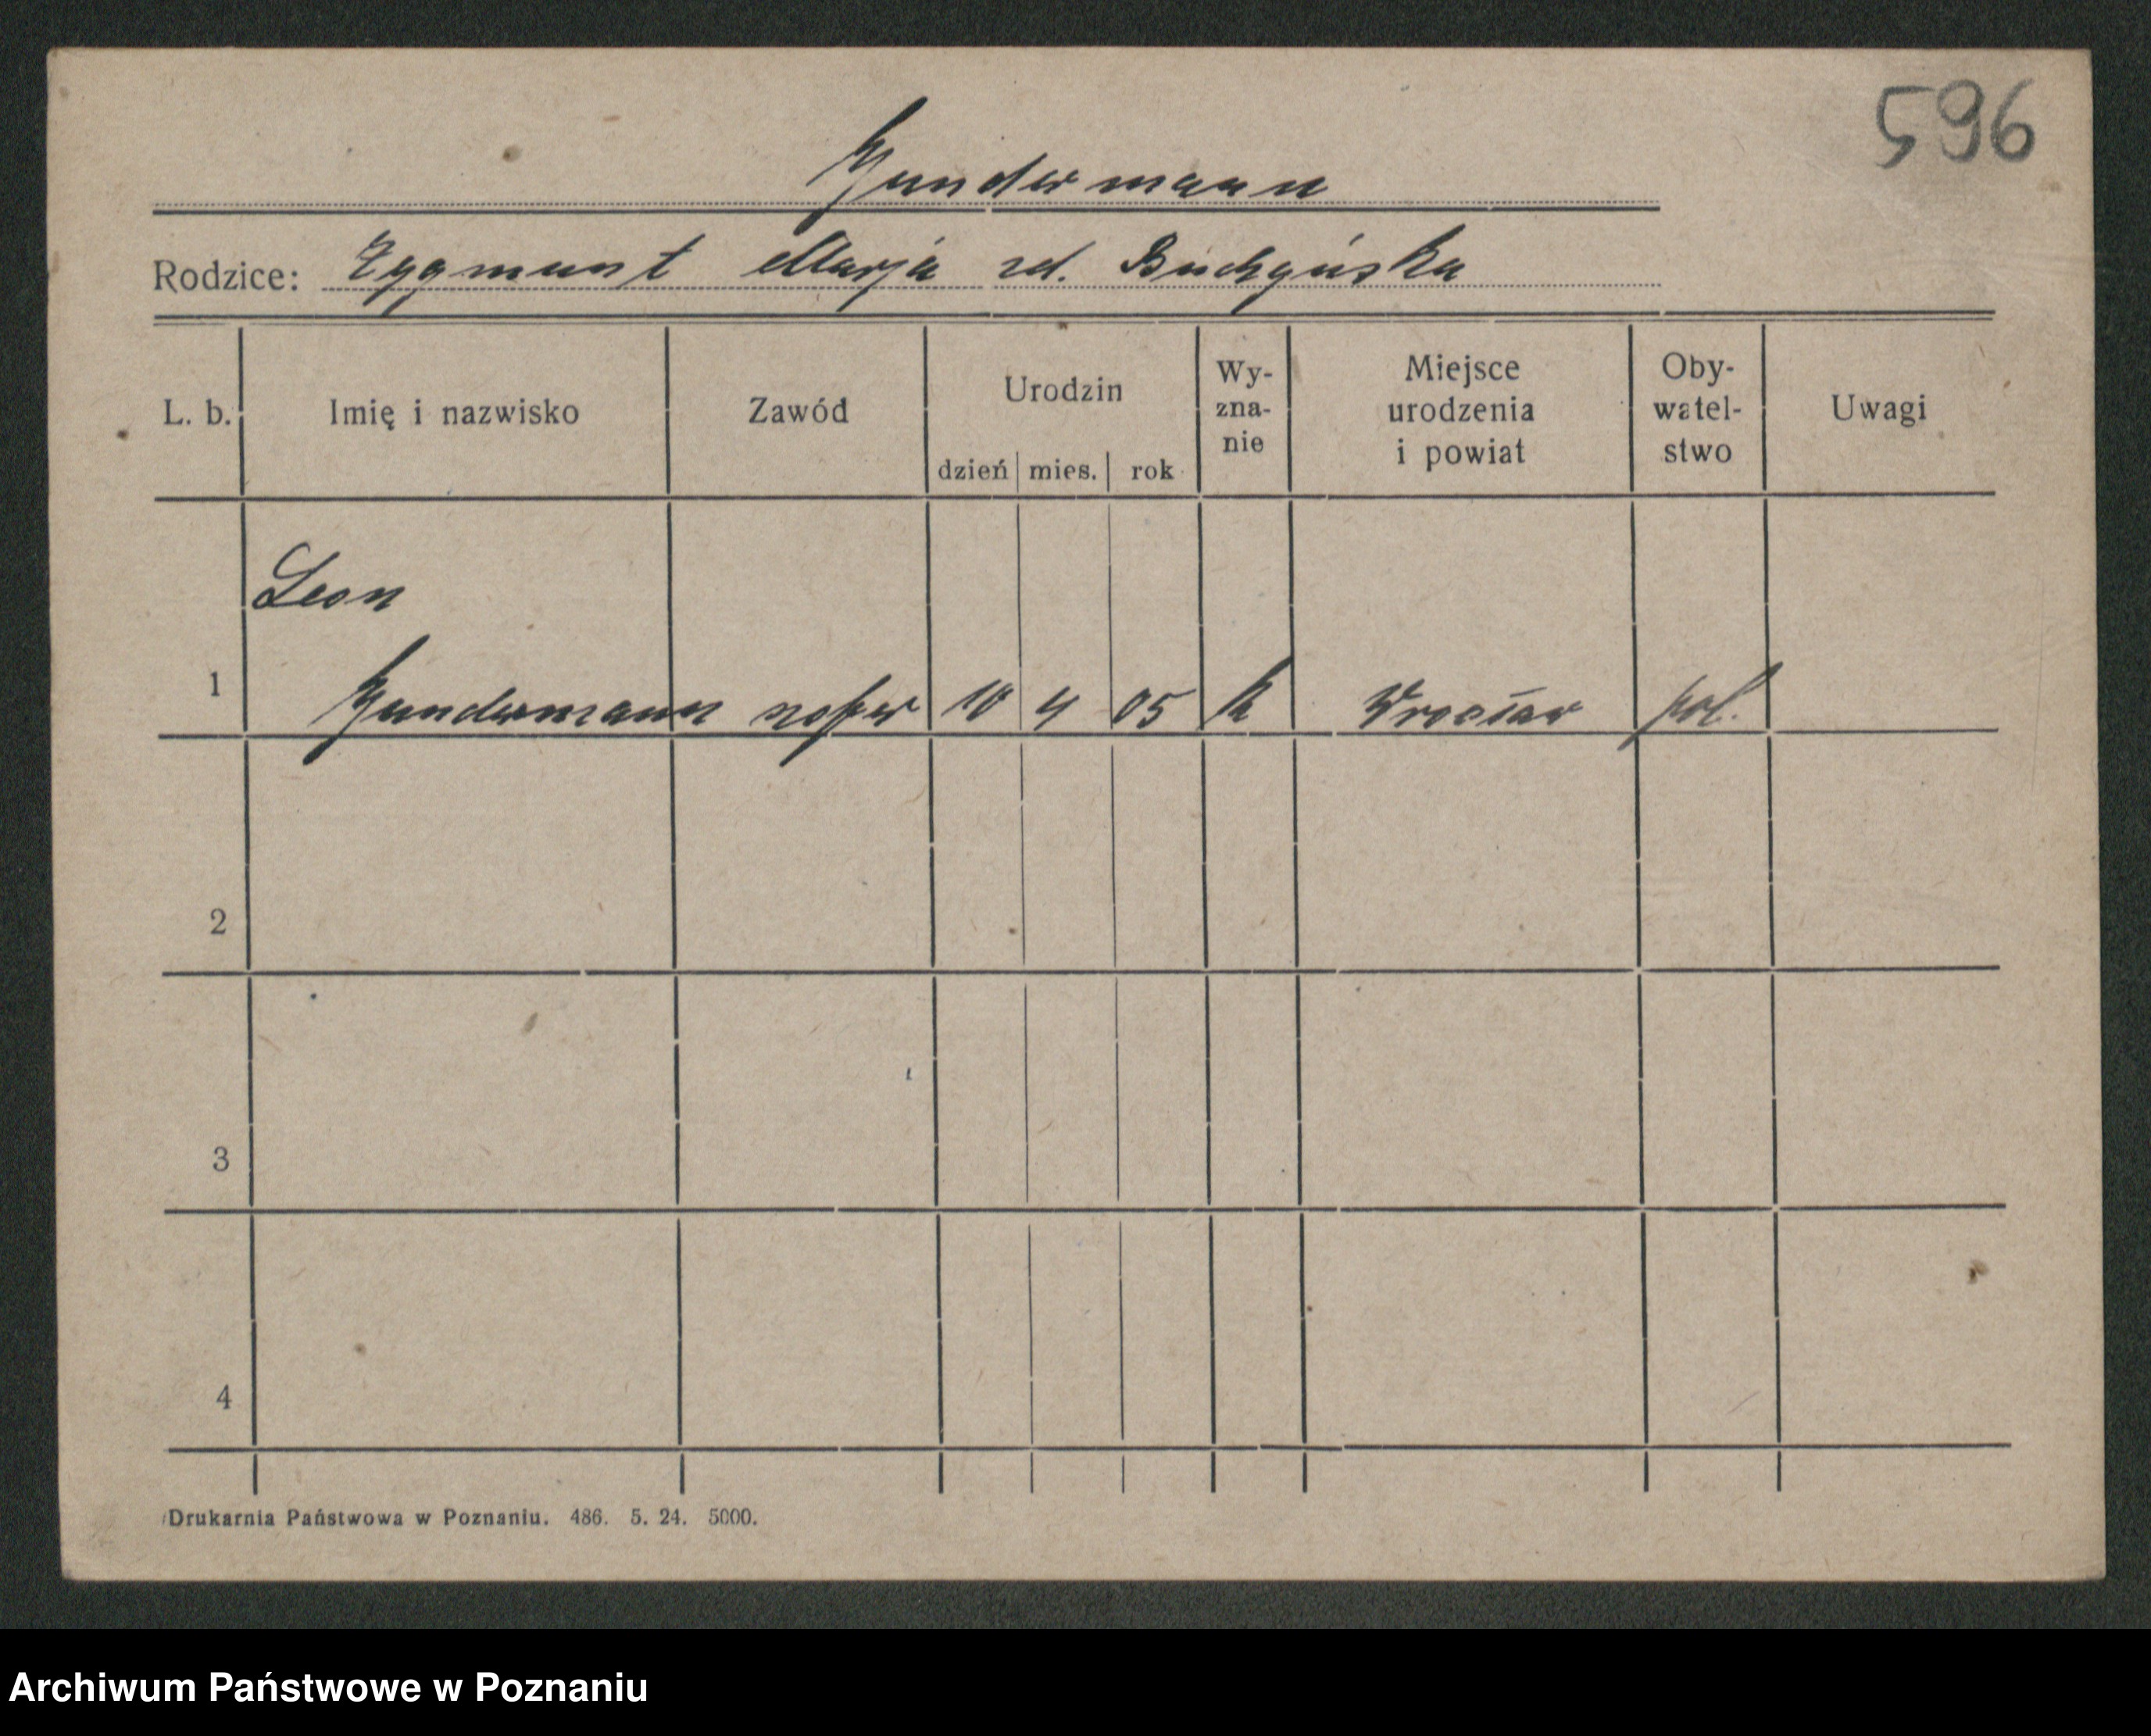 596
Gundermann
Rodzice: Zygmunt Marja zd. Buchzińska
L. b. Imię i nazwisko Zawód Urodzin dzień mies. rok Wy-zna-nie Miejsce urodzenia i powiat Oby-watel-stwo Uwagi
Leon
1 Gundermann szofer 10 4 05 k Wrocław pol.
2
3
4
Drukarnia Państwowa w Poznaniu. 486. 5. 24. 5000.
Archiwum Państwowe w Poznaniu